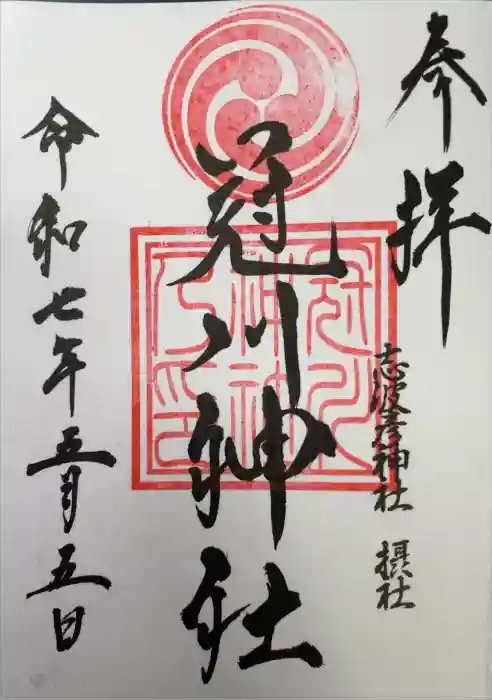 奉拝
志波彦神社 摂社
冠川神社
令和七年五月五日